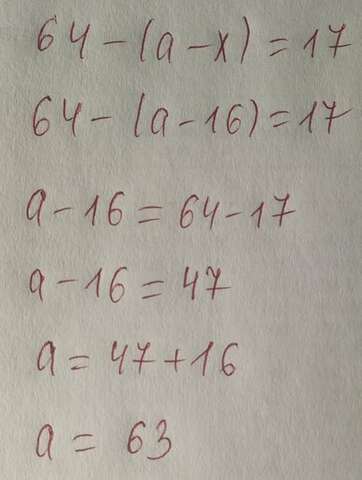 64 - (a - x) = 17
64 - (a - 16) = 17
a - 16 = 64 - 17
a - 16 = 47
a = 47 + 16
a = 63